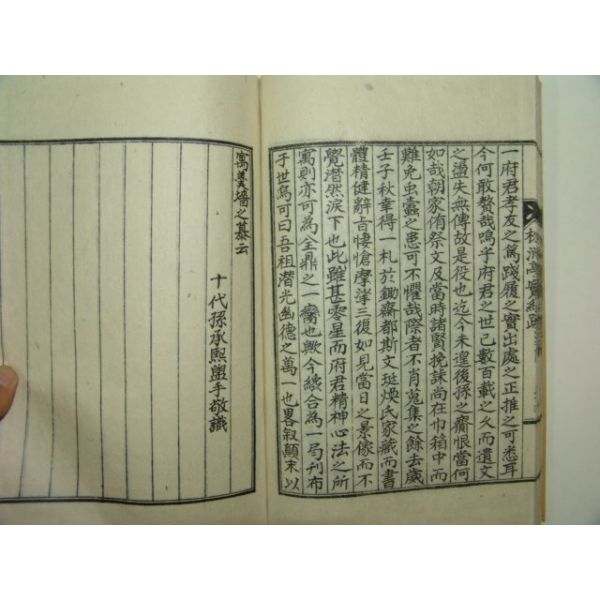 一府君孝友之篤踐履之實出處之正推之可悉耳
今何敢贅哉嗚乎府君之世已數百載之久而遺文
之盪失無傳故是役也迄今未遑後孫之齎恨當何
如哉朝家侑祭文及當時諸賢挽誄尚在巾箱中而
難免虫蠹之患可不懼哉際者不肖蒐集之餘去歲
壬子秋幸得一札於鋤齋都斯文珽煥氏家藏而書
體精健辭旨悽愴摩挲三復如見當日之景像而不
覺潛然淚下也此雖甚零星而府君精神心法之所
寓則亦可為全鼎之一臠也歟今綴合為一局刊布
于世焉可曰吾祖潛光幽德之萬一也畧叙顛末以
寓羹墻之慕云
十代孫承熙盥手敬識